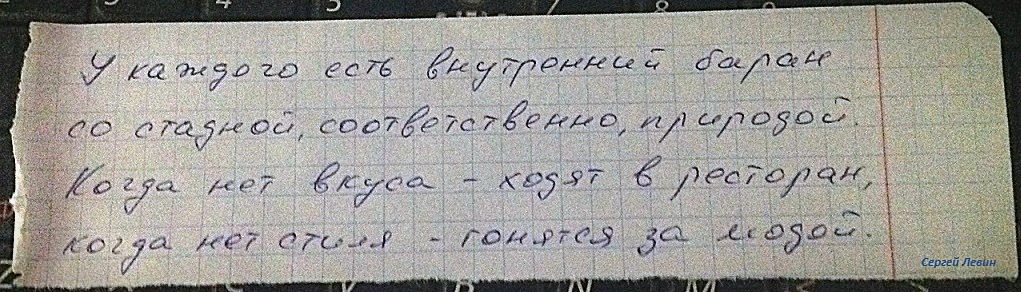 У каждого есть внутренний баран
со стадной, соответственно, природой.
Когда нет вкуса - ходят в ресторан,
когда нет стиля - гонятся за модой.
Сергей Левин